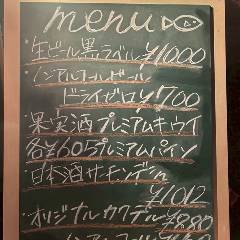 menu
・生ビール黒ラベル ¥1000
・ノンアルコールビール
ドライゼロ ¥700
・果実酒プレミアムキウイ
各¥605プレミアムパイン
・日本酒サーモンデュ
¥1012
・オリジナルカクテル ¥880
・ノンアルコール